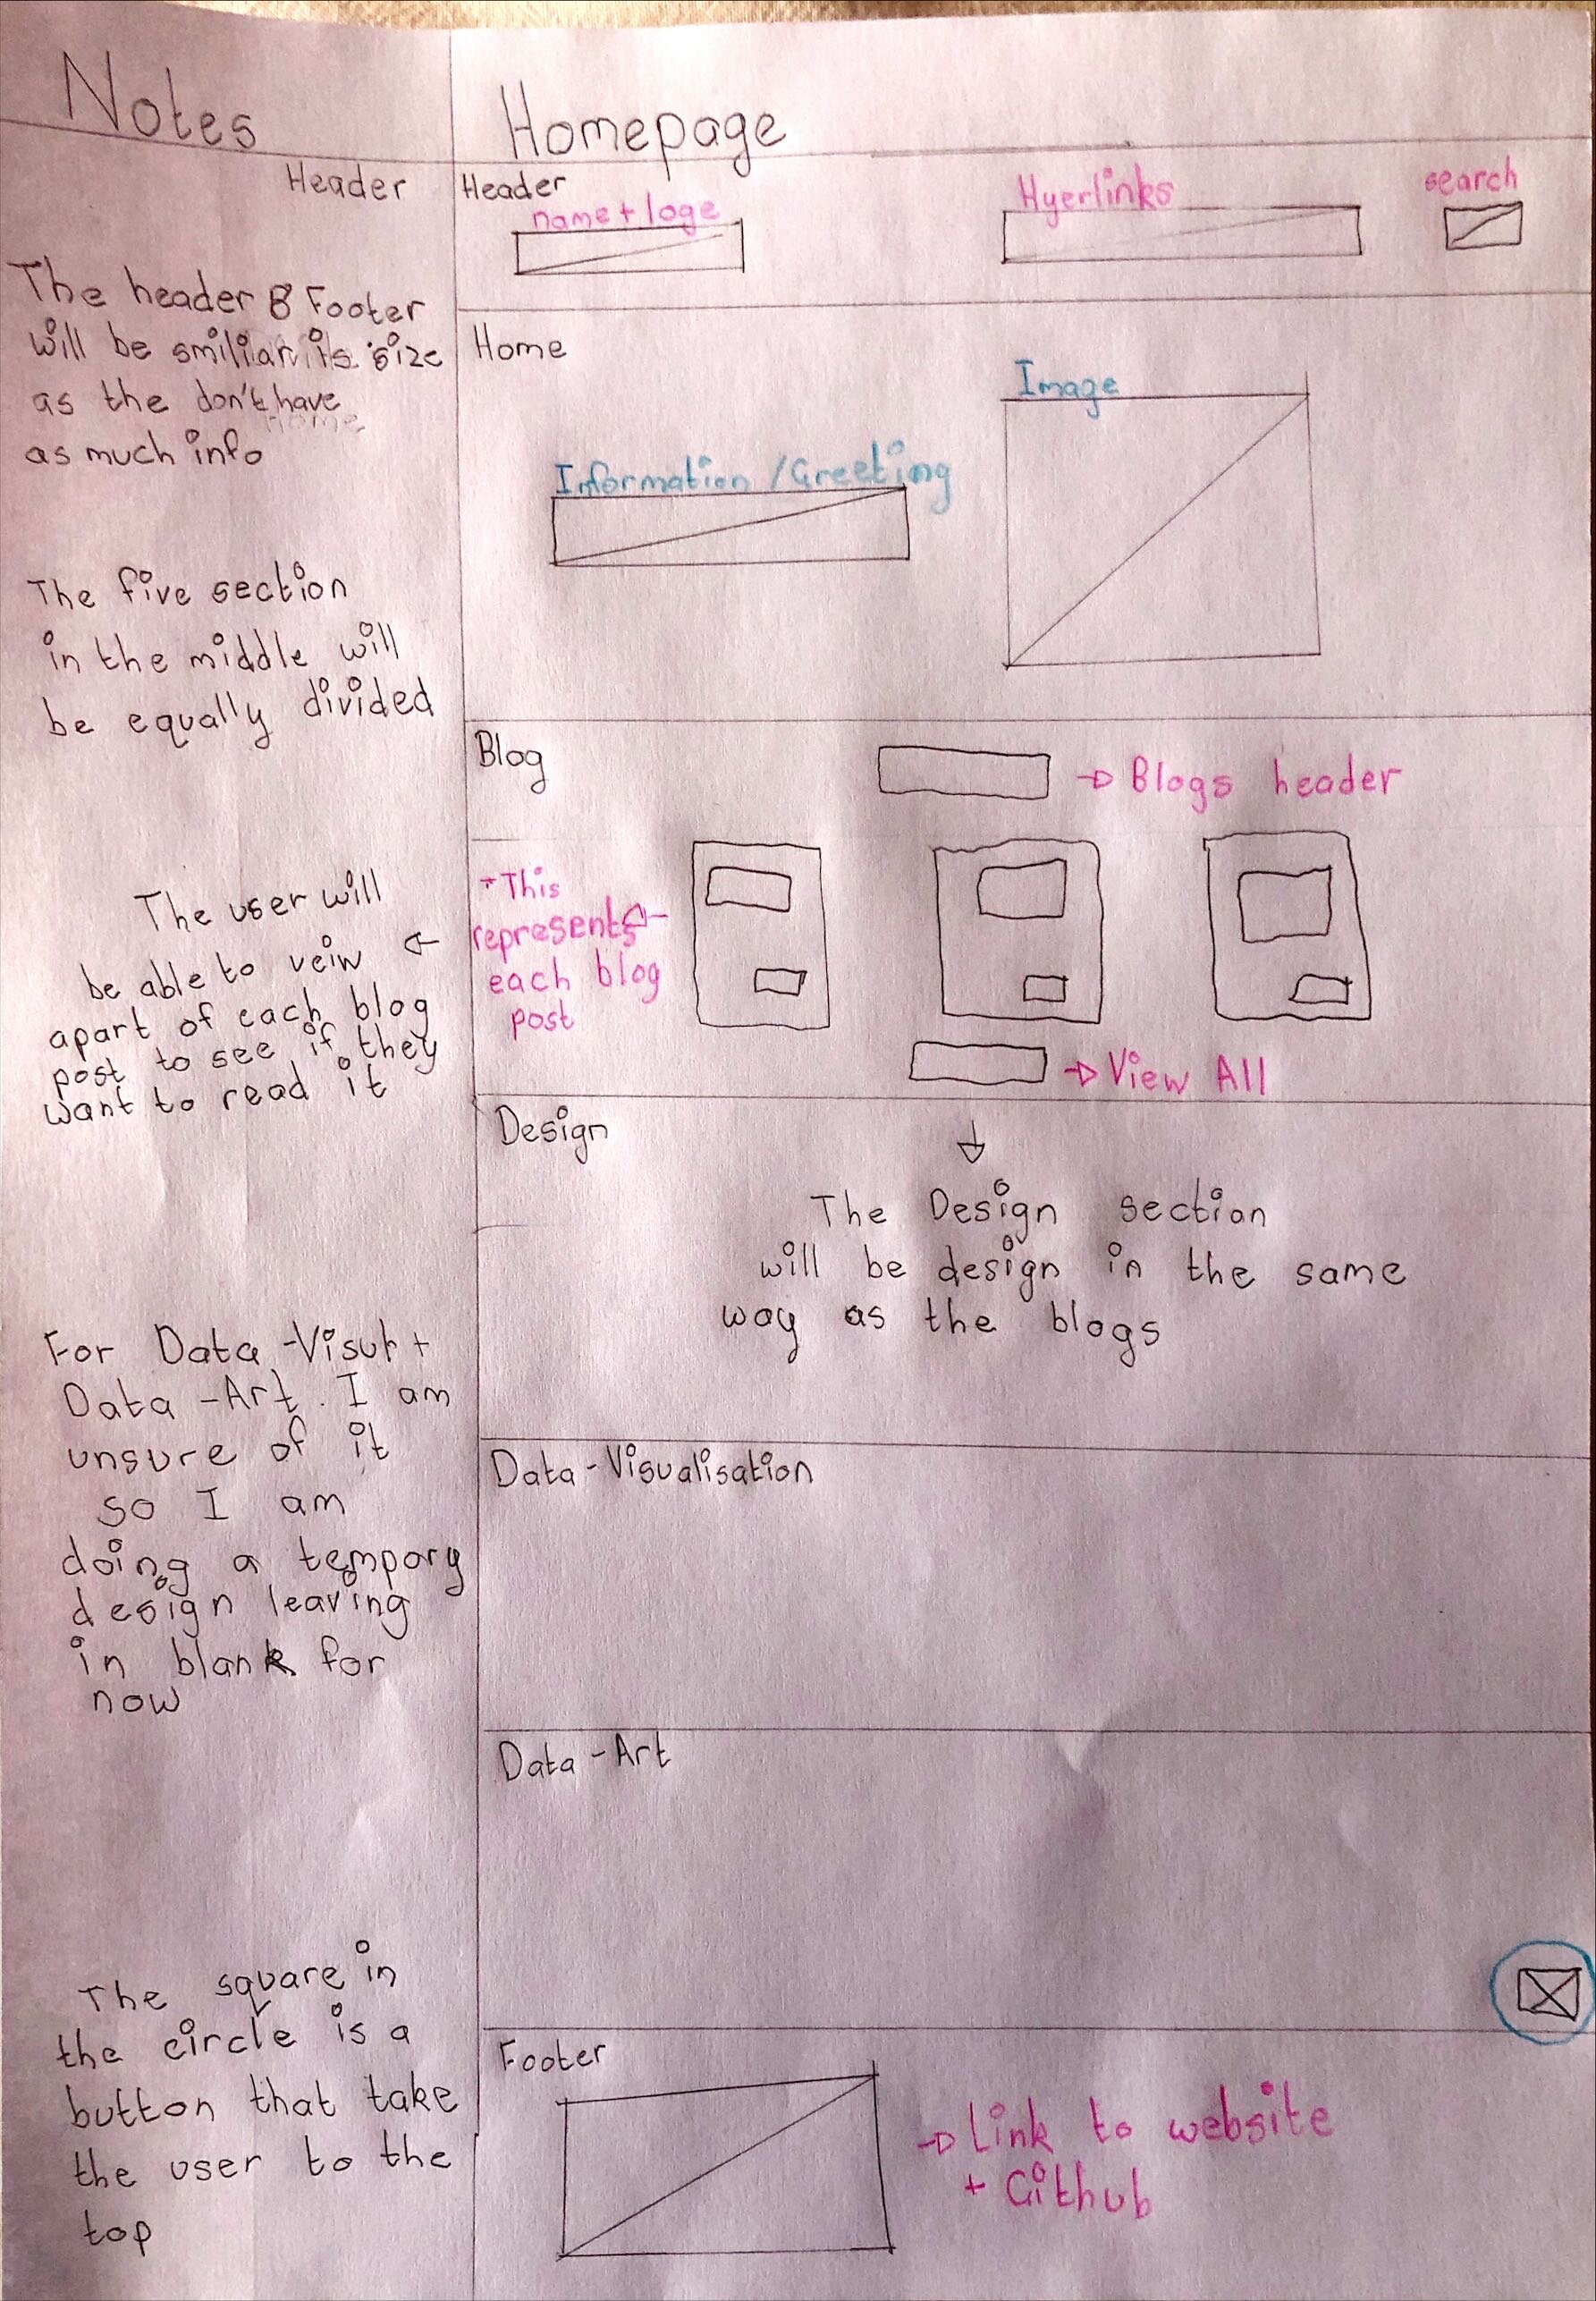 Notes
Header
The header & Footer
will be smiliar its size
as the don't have
as much info
The five section
in the middle will
be equally divided
The user will
be able to vein
apart of each blog
post to see if they
want to read it
For Data-Visul +
Data-Art. I am
unsure of it
so I am
doing a tempory
design leaving
in blank for
now
The square in
the circle is a
button that take
the user to the
top
Homepage
Header
name + loge
Hyerlinks
search
Home
Information / Greeting
Image
Blog
→ Blogs header
This
represents
each blog
post
→ View All
Design
The Design section
will be design in the same
way as the blogs
Data-Visualisation
Data-Art
Footer
→ Link to website
+ Github